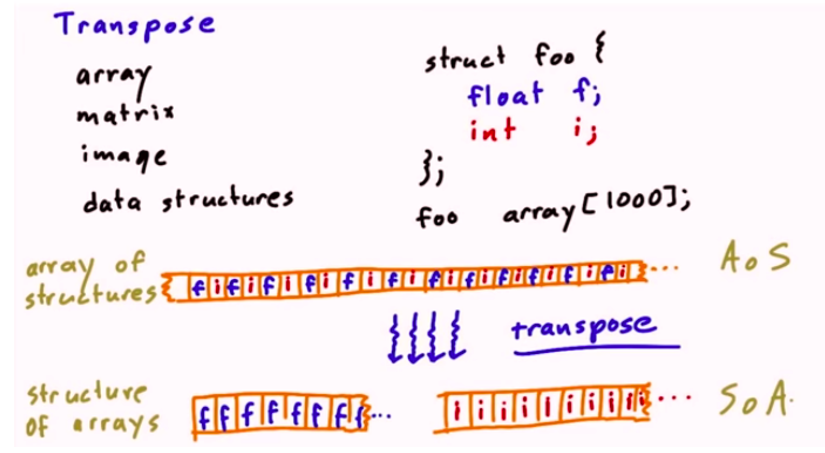 Transpose
array
matrix
image
data structures
struct foo {
float f;
int i;
};
foo array[1000];
array of
structures
f i f i f i f i f i f i f i f i f i f i f i ...
AoS
transpose
structure
of arrays
f f f f f f f f ...
i i i i i i i i i ...
SoA.